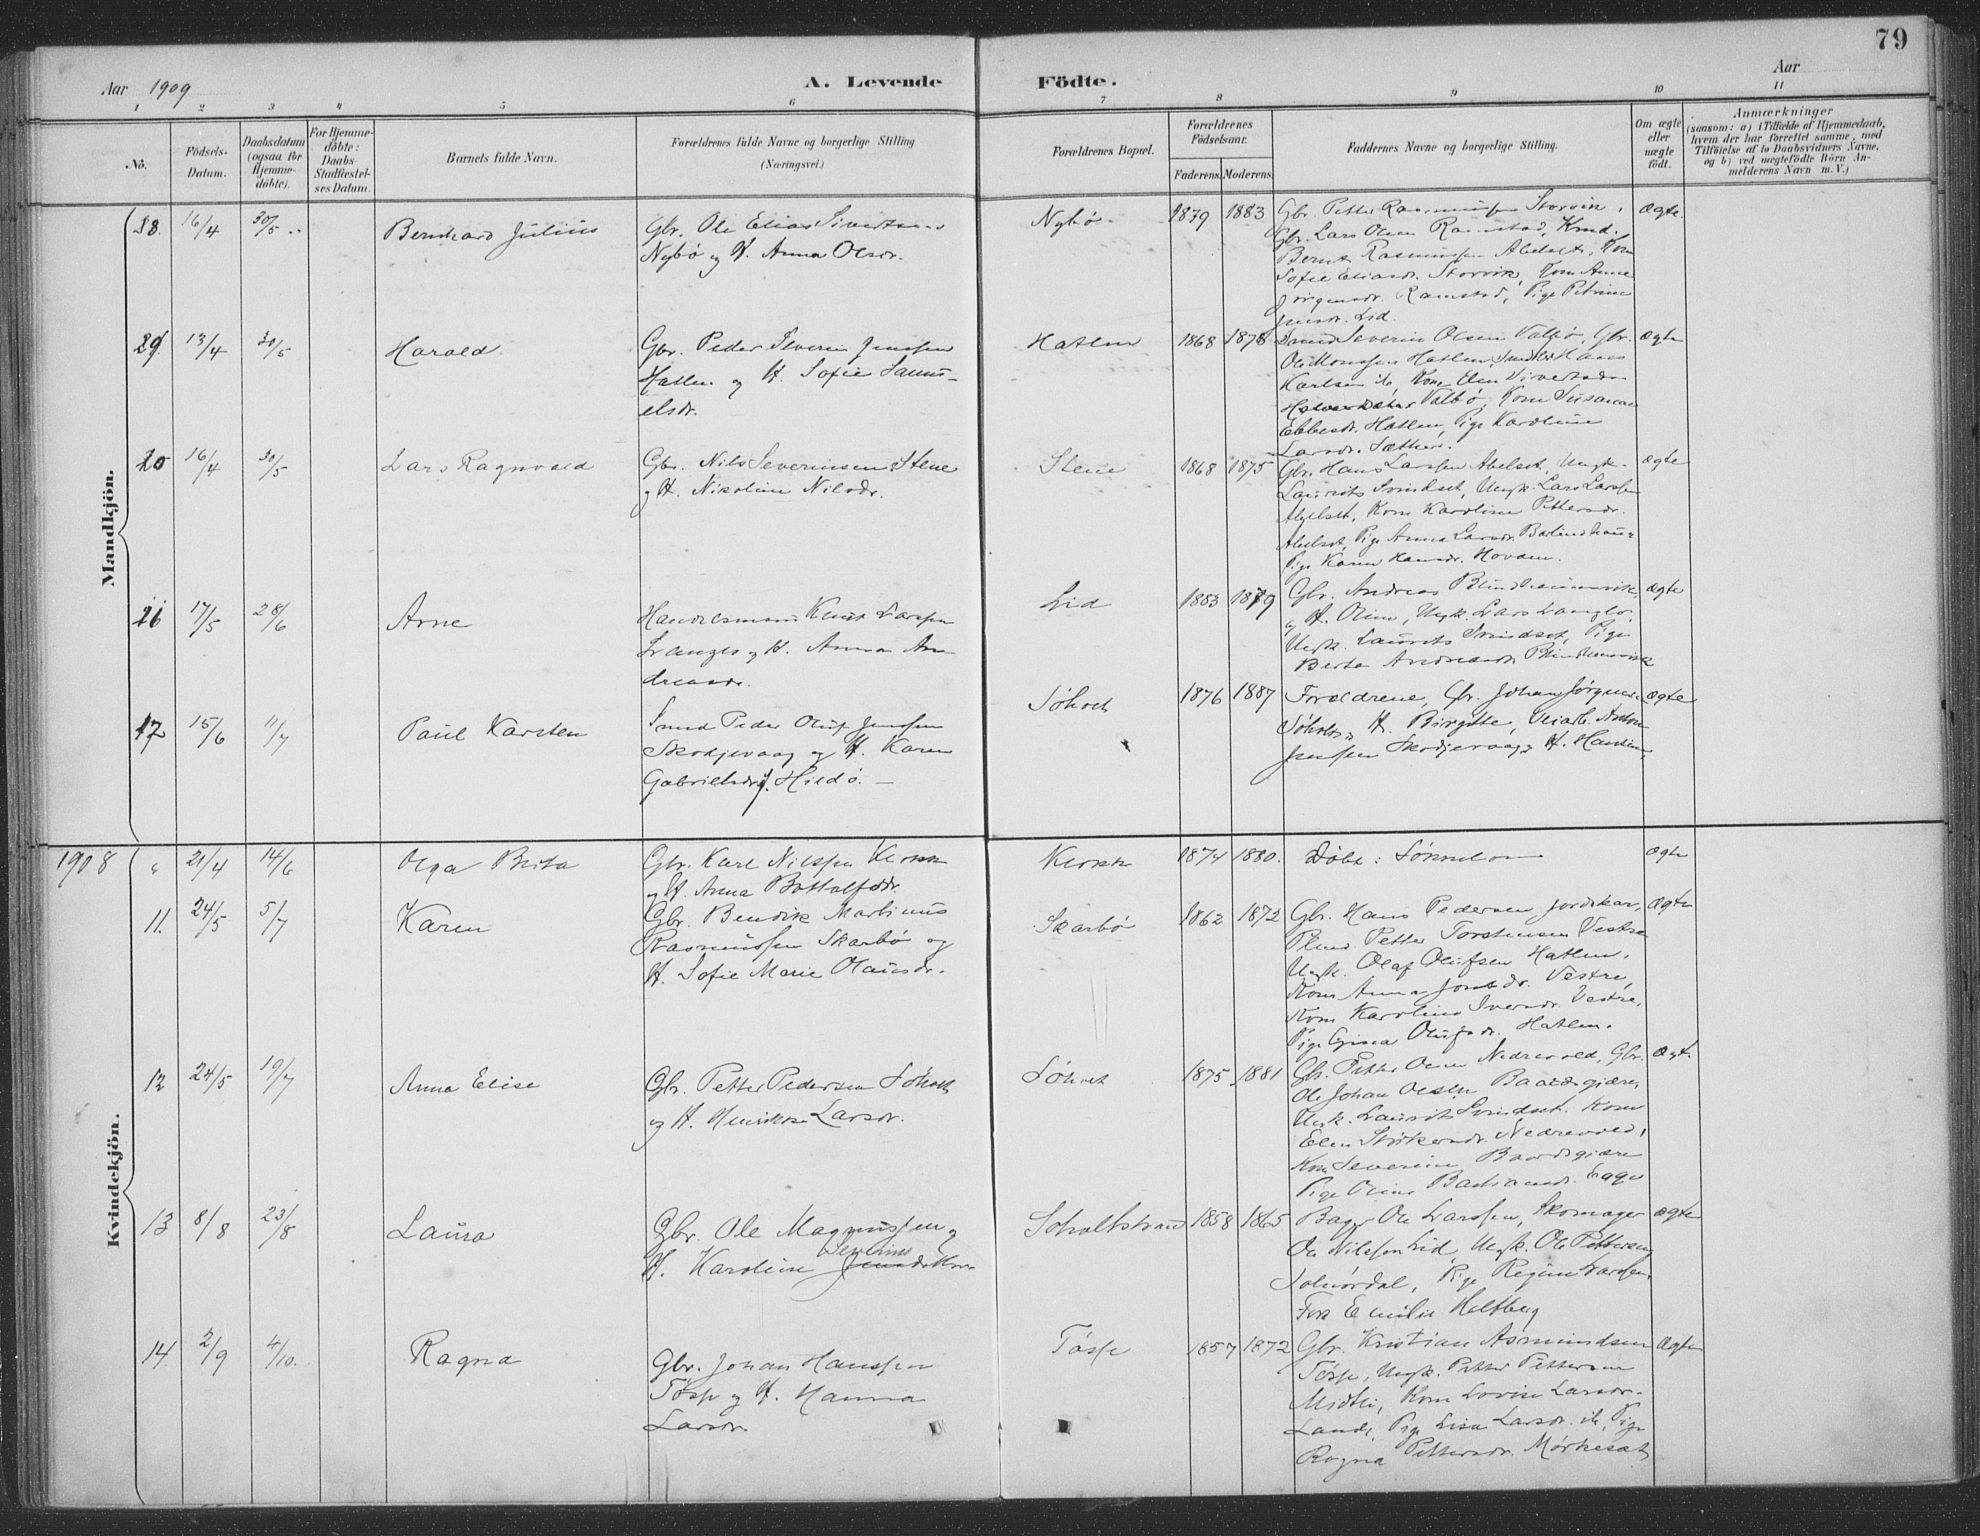 79
Aar 1909
A. Levende Födte.
Aar
1 2 3 4 5 6 7 8 9 10 11
No.
Födsels-Datum.
Daabsdatum (ogsaa for Hjemmedöbte).
For Hjemmedöbte: Daabs Stadfæstelses Datum.
Barnets fulde Navn.
Forældrenes fulde Navne og borgerlige Stilling
(Næringsvei.)
Forældrenes Bopæl.
Forældrenes Födselsaar.
Faderens. Moderens.
Faddernes Navne og borgerlige Stilling.
Om ægte eller uægte födt.
Anmærkninger
(saasom: a) i Tilfælde af Hjemmedaab, hvem der har forrettet samme, med Tilföielse af to Daabsvidners Navne, og b) ved uægtefödte Börn Anmelderens Navn m. V.)
Mandkjön.
16/4 30/5
Bernhard Julius
Gbr. Ole Elias Sivertsen
Nybø og H. Anna Olsdr.
Nybø
1879 1883
Gbr. Petter Rasmussen Storvik,
Gbr. Lars Olsen Ramstad,
Bernt Rasmussen Abelset, Kone
Sofie Eliasdr. Storvik, Kone Anne
Jørgensdr. Ramstad, Pige Petrine
Jensdr. Lid.
ægte
13/4 30/5
Harald
Gbr. Peder Severin Jenssen
Hatlen og H. Sofie Samu-
elsdr.
Hatlen
1868 1878
Severin Olsen Valbø, Gbr.
Ole Monssen Hatlen, Hans
Karlsen ib, Kone Elen Sivertsdr.
Valbø, Kone Susanna
Ebbesdr. Hatlen, Pige Karoline
Larsdr. Sæther.
ægte
20 16/4 30/5
Lars Ragnvald
Gbr. Nils Severinsen Stene
og H. Nikoline Nilsdr.
Stene
1868 1875
Gbr. Hans Larssen Abelset, Ungk.
Laurits Svindset, Ungk. Lars Larssen
Abelset, Kone Karoline Pettersdr.
Abelset, Pige Anna Larsdr.
Pige Karen Hansdr. Hovden.
ægte
17/5 28/6
Arne
Handelsmand Knut Larssen
og H. Anna An-
dreasdr.
Lid
1883 1879
Gbr. Andreas Blindheimsvik
og H. Oline, Ungk. Lars Langlo,
Ungk. Laurits Svindset, Pige
Berta Andreasdr. Blindheimsvik
ægte
15/6 11/7
Paul Karsten
Smed Peder Oluf Jenssen
Skodjevaag og H. Karen
Gabrielsdr. f. Hildø.
Søholt
1876 1887
Forældrene, Gbr. Johan Jørgensen
Søholt, H. Birgitte, Veiarb. Anton
Jenssen Skodjevaag, H. Hansine,
ægte
Kvindekjön.
1908 " 21/4 14/6
Olga Berta
Gbr. Karl Nilssen Klokk
og H. Anna Bottolfsdr.
Klokk
1874 1880.
Døbt:
ægte
11. 24/5 5/7
Karen
Gbr. Bendik Martinus
Rasmussen Skarbø og
H. Sofie Marie Olausdr.
Skarbø
1862 1872
Gbr. Hans Pedersen
Petter Torstensen Vestre
Ungk. Olaf Olufsen Hatlen,
Kone Anna Vestre,
Kone Karoline Iversdr. Vestre,
Pige Gina Olufsdr. Hatlen.
ægte
12 24/5 19/7
Anna Elise
Gbr. Petter Pedersen Søholt
og H. Henrikke Larsdr.
Søholt
1875 1881
Gbr. Petter Olsen Nedrevold, Gbr.
Ole Johan Olsen Baardsgjære,
Ungk. Laurits Svindset. Kone
Elen Størkersdr. Nedrevold,
Kone Severine Baardsgjære
Pige Oline
ægte
13 8/8 23/8
Laura
Gbr. Ole Magnussen og
H. Karoline Severine
Søholtstrand
1858 1865
Bager Ole Larssen, Skomager
Ole Nilssen Lid, Ungk. Ole Pettersen
Solnørdal, Pige Regine Larssen,
Frk Emilie Heltberg
ægte
14. 2/9 4/10.
Ragna
Gbr. Johan Hanssen
Tøsse og H. Hanna
Larsdr.
Tøsse
1857 1872
Gbr. Kristian Asmundsen
Tøsse, Ungk. Petter Pettersen
Midtli, Kone Lovise Larsdr.
Lande, Pige Lisa Larsdr. ib, Pige
Ragna Pettersdr. Mørkeset
ægte